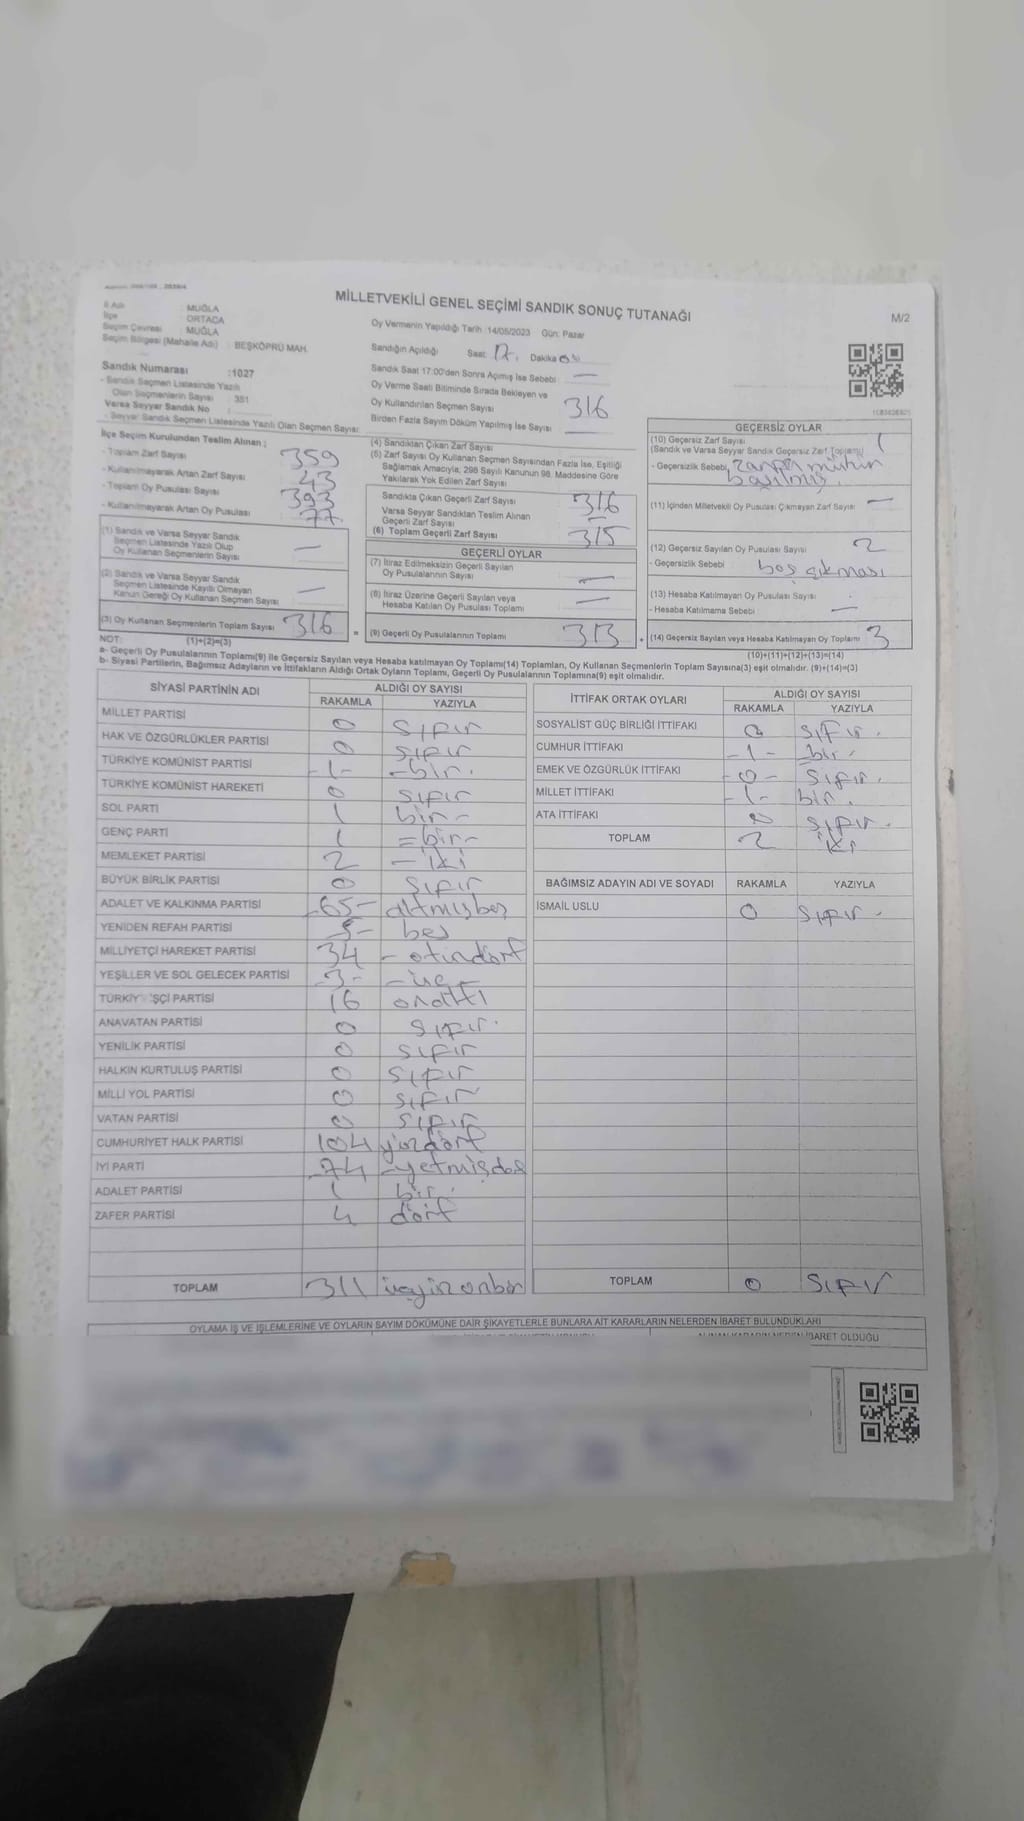 MİLLETVEKİLİ GENEL SEÇİMİ SANDIK SONUÇ TUTANAĞI
M/2
İl Adı : MUĞLA
İlçe : ORTACA
Seçim Çevresi : MUĞLA
Seçim Bölgesi (Mahalle Adı) : BEŞKÖPRÜ MAH.
Sandık Numarası :1027
- Sandık Seçmen Listesinde Yazılı
Olan Seçmenlerin Sayısı : 351
Varsa Seyyar Sandık No :
- Seyyar Sandık Seçmen Listesinde Yazılı Olan Seçmen Sayısı:
Oy Vermenin Yapıldığı Tarih :14/05/2023 Gün: Pazar
Sandığın Açıldığı Saat: 17. Dakika 00
Sandık Saat 17:00'den Sonra Açılmış İse Sebebi —
Oy Verme Saati Bitiminde Sırada Bekleyen ve
Oy Kullandırılan Seçmen Sayısı 316
Birden Fazla Sayım Döküm Yapılmış İse Sayısı —
İlçe Seçim Kurulundan Teslim Alınan :
- Toplam Zarf Sayısı 359
- Kullanılmayarak Artan Zarf Sayısı 43
- Toplam Oy Pusulası Sayısı 393
- Kullanılmayarak Artan Oy Pusulası 77
(1) Sandık ve Varsa Seyyar Sandık
Seçmen Listesinde Yazılı Olup
Oy Kullanan Seçmenlerin Sayısı —
(2) Sandık ve Varsa Seyyar Sandık
Seçmen Listesinde Kayıtlı Olmayan
Kanun Gereği Oy Kullanan Seçmen Sayısı —
(3) Oy Kullanan Seçmenlerin Toplam Sayısı 316
(1)+(2)=(3)
(4) Sandıktan Çıkan Zarf Sayısı
(5) Zarf Sayısı Oy Kullanan Seçmen Sayısından Fazla İse, Eşitliği
Sağlamak Amacıyla; 298 Sayılı Kanunun 98. Maddesine Göre
Yakılarak Yok Edilen Zarf Sayısı
Sandıkta Çıkan Geçerli Zarf Sayısı 316
Varsa Seyyar Sandıktan Teslim Alınan
Geçerli Zarf Sayısı —
(6) Toplam Geçerli Zarf Sayısı 315
GEÇERLİ OYLAR
(7) İtiraz Edilmeksizin Geçerli Sayılan
Oy Pusulalarının Sayısı —
(8) İtiraz Üzerine Geçerli Sayılan veya
Hesaba Katılan Oy Pusulası Toplamı —
(9) Geçerli Oy Pusulalarının Toplamı 313
GEÇERSİZ OYLAR
(10) Geçersiz Zarf Sayısı 1
(Sandık ve Varsa Seyyar Sandık Geçersiz Zarf Toplamı)
- Geçersizlik Sebebi
basılmış.
(11) İçinden Milletvekili Oy Pusulası Çıkmayan Zarf Sayısı —
(12) Geçersiz Sayılan Oy Pusulası Sayısı 2
- Geçersizlik Sebebi boş çıkması
(13) Hesaba Katılmayan Oy Pusulası Sayısı
- Hesaba Katılmama Sebebi —
(14) Geçersiz Sayılan veya Hesaba Katılmayan Oy Toplamı 3
(10)+(11)+(12)+(13)=(14)
NOT:
a- Geçerli Oy Pusulalarının Toplamı(9) ile Geçersiz Sayılan veya Hesaba katılmayan Oy Toplamı(14) Toplamları, Oy Kullanan Seçmenlerin Toplam Sayısına(3) eşit olmalıdır. (9)+(14)=(3)
b- Siyasi Partilerin, Bağımsız Adayların ve İttifakların Aldığı Ortak Oyların Toplamı, Geçerli Oy Pusulalarının Toplamına(9) eşit olmalıdır.
SİYASİ PARTİNİN ADI ALDIĞI OY SAYISI
RAKAMLA YAZIYLA
MİLLET PARTİSİ 0 sıfır
HAK VE ÖZGÜRLÜKLER PARTİSİ 0 sıfır
TÜRKİYE KOMÜNİST PARTİSİ -1- -bir.
TÜRKİYE KOMÜNİST HAREKETİ 0 sıfır
SOL PARTİ 1 bir-
GENÇ PARTİ 1 =bir-
MEMLEKET PARTİSİ 2 -iki
BÜYÜK BİRLİK PARTİSİ 0 sıfır
ADALET VE KALKINMA PARTİSİ -65- altmışbeş
YENİDEN REFAH PARTİSİ 5- beş
MİLLİYETÇİ HAREKET PARTİSİ 34 - otuzdört
YEŞİLLER VE SOL GELECEK PARTİSİ -3- -üç-
TÜRKİYE İŞÇİ PARTİSİ 16 onaltı
ANAVATAN PARTİSİ 0 sıfır.
YENİLİK PARTİSİ 0 sıfır
HALKIN KURTULUŞ PARTİSİ 0 sıfır
MİLLİ YOL PARTİSİ 0 sıfır
VATAN PARTİSİ 0 sıfır
CUMHURİYET HALK PARTİSİ 104 yüzdört
İYİ PARTİ -74 -yetmişdört
ADALET PARTİSİ 1 bir.
ZAFER PARTİSİ 4 dört
TOPLAM 311 üçyüzonbir
İTTİFAK ORTAK OYLARI ALDIĞI OY SAYISI
RAKAMLA YAZIYLA
SOSYALİST GÜÇ BİRLİĞİ İTTİFAKI 0 sıfır.
CUMHUR İTTİFAKI -1- bir.
EMEK VE ÖZGÜRLÜK İTTİFAKI -0- sıfır.
MİLLET İTTİFAKI -1- bir.
ATA İTTİFAKI 0 sıfır.
TOPLAM 2 iki
BAĞIMSIZ ADAYIN ADI VE SOYADI RAKAMLA YAZIYLA
İSMAİL USLU 0 sıfır.
TOPLAM 0 sıfır
OYLAMA İŞ VE İŞLEMLERİNE VE OYLARIN SAYIM DÖKÜMÜNE DAİR ŞİKAYETLERLE BUNLARA AİT KARARLARIN NELERDEN İBARET BULUNDUKLARI
İBARET OLDUĞU